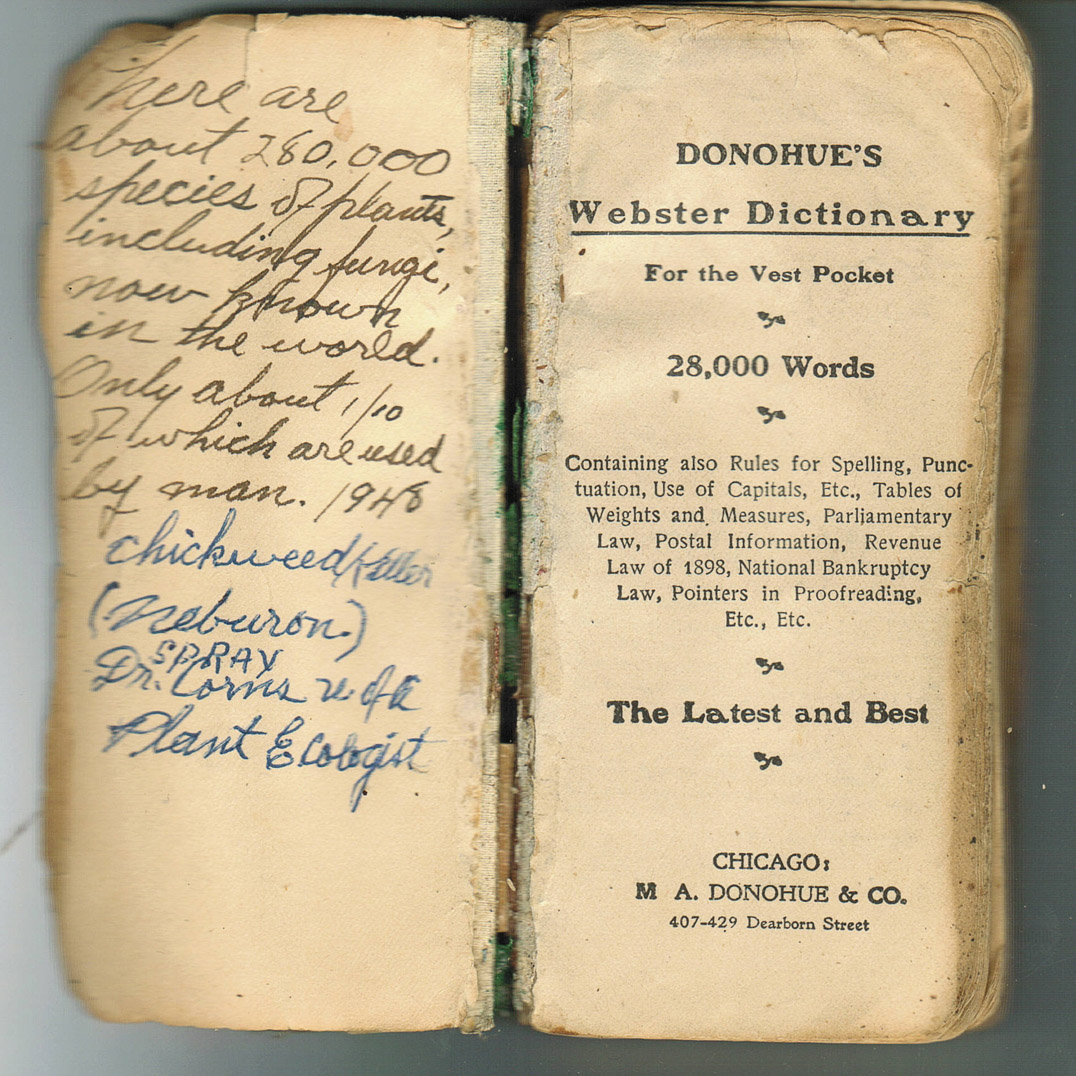 There are
about 280,000
species of plants,
including fungi,
now known
in the world.
Only about 1/10
of which are used
by man. 1948
chickweed killer
(Neburon.)
SPRAY
Dr. Corns U. of A
Plant Ecologist
DONOHUE'S
Webster Dictionary
For the Vest Pocket
28,000 Words
Containing also Rules for Spelling, Punc-
tuation, Use of Capitals, Etc., Tables of
Weights and Measures, Parliamentary
Law, Postal Information, Revenue
Law of 1898, National Bankruptcy
Law, Pointers in Proofreading,
Etc., Etc.
The Latest and Best
CHICAGO:
M A. DONOHUE & CO.
407-429 Dearborn Street